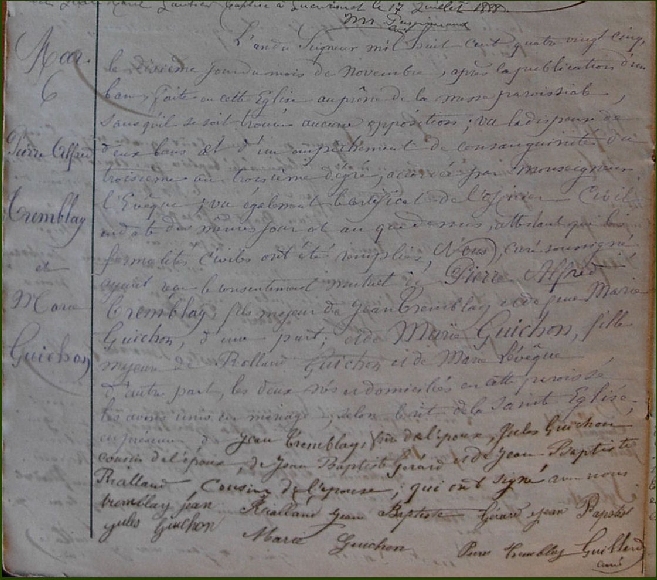 le 17 Juillet 1888
Mar.
6
Pierre Alfred
Tremblay
et
Marie
Guichon
L'an du Seigneur mil huit cent quatre vingt cinq,
le jour du mois de Novembre, après la publication d'un
ban, faite en cette Eglise au prône de la messe paroissiale,
sans qu'il se soit trouvé aucune opposition; vu la dispense de
deux bans et d'un empêchement de consanguinité du
troisième au troisième degré, accordée par Monseigneur
l'Evêque; vu également le certificat de l'officier Civil
en date des mêmes jour et an que dessus, attestant que les
formalités civiles ont été remplies, Nous, curé soussigné
ayant reçu le consentement mutuel de Pierre Alfred
Tremblay fils majeur de Jean Tremblay et de Marie
Guichon, d'une part; et de Marie Guichon, fille
majeure de Rolland Guichon et de Marie Levêque
d'autre part, les deux nés et domiciliés en cette paroisse,
les avons unis en mariage, selon le rit de la Sainte Eglise,
en présence de Jean Tremblay, de l'époux, Jules Guichon,
cousin de l'époux, de Jean Baptiste Girard et de Jean Baptiste
Rialland cousins de l'épouse, qui ont signé avec nous
tremblay jean Rialland jean Baptiste Girard jean
jules Guichon Marie Guichon Pierre Tremblay
curé